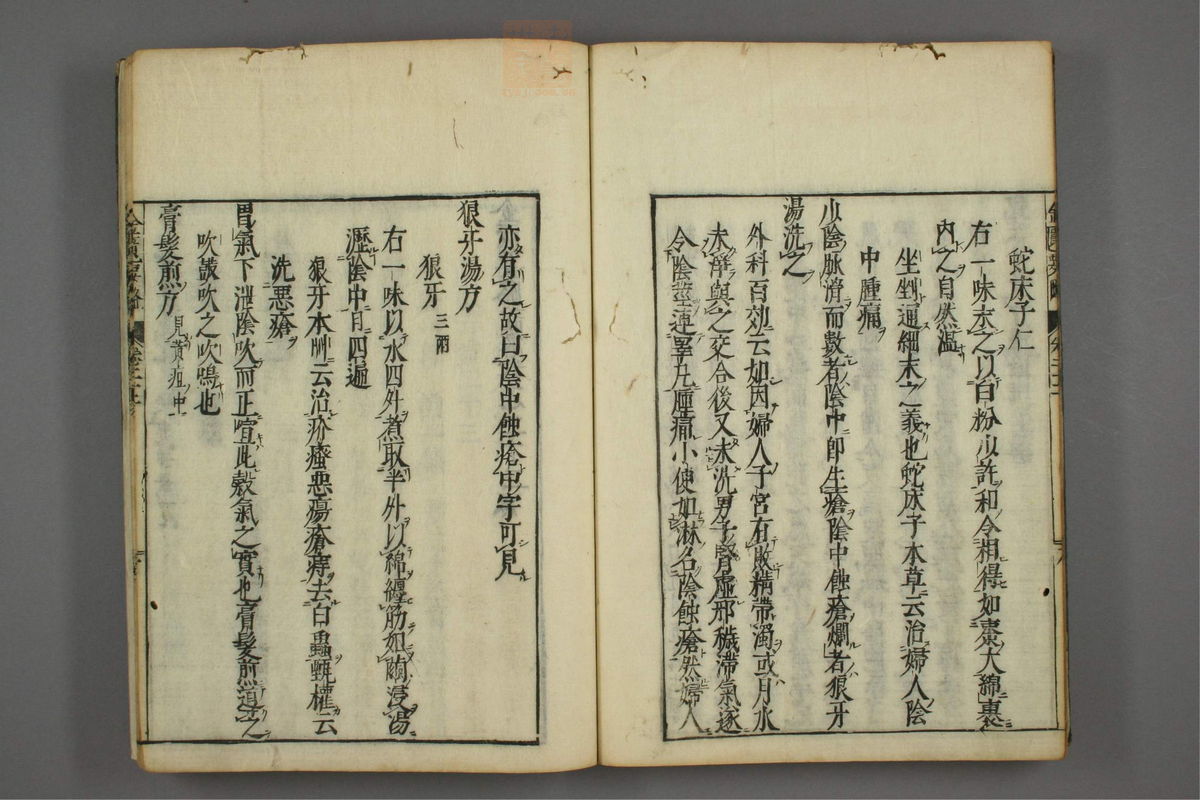 蛇床子仁
右一味末之以白粉少許和令相得如棗大綿裹
內之自然溫
坐剉通細末之義也蛇床子本草云治婦人陰
中腫痛
少陰脉滑而數者陰中即生瘡陰中蝕瘡爛者狼牙
湯洗之
外科百効云如因婦人子宮有敗精帶濁或月水
未淨與之交合後又未洗男子腎虛邪穢滯氣逐
令陰莖連睪丸腫痛小便如淋名陰蝕瘡然婦人
亦有之故曰陰中蝕瘡中字可見
狼牙湯方
狼牙三兩
右一味以水四升煮取半升以綿纏筋如繭浸湯
瀝陰中日四遍
狼牙本草云治疥瘙惡瘍瘡痔去白蟲甄權云
洗惡瘡
胃氣下泄陰吹而正喧此穀氣之實也膏髮煎導之
吹讝吹之吹鳴也
膏髮煎方見黃疸中